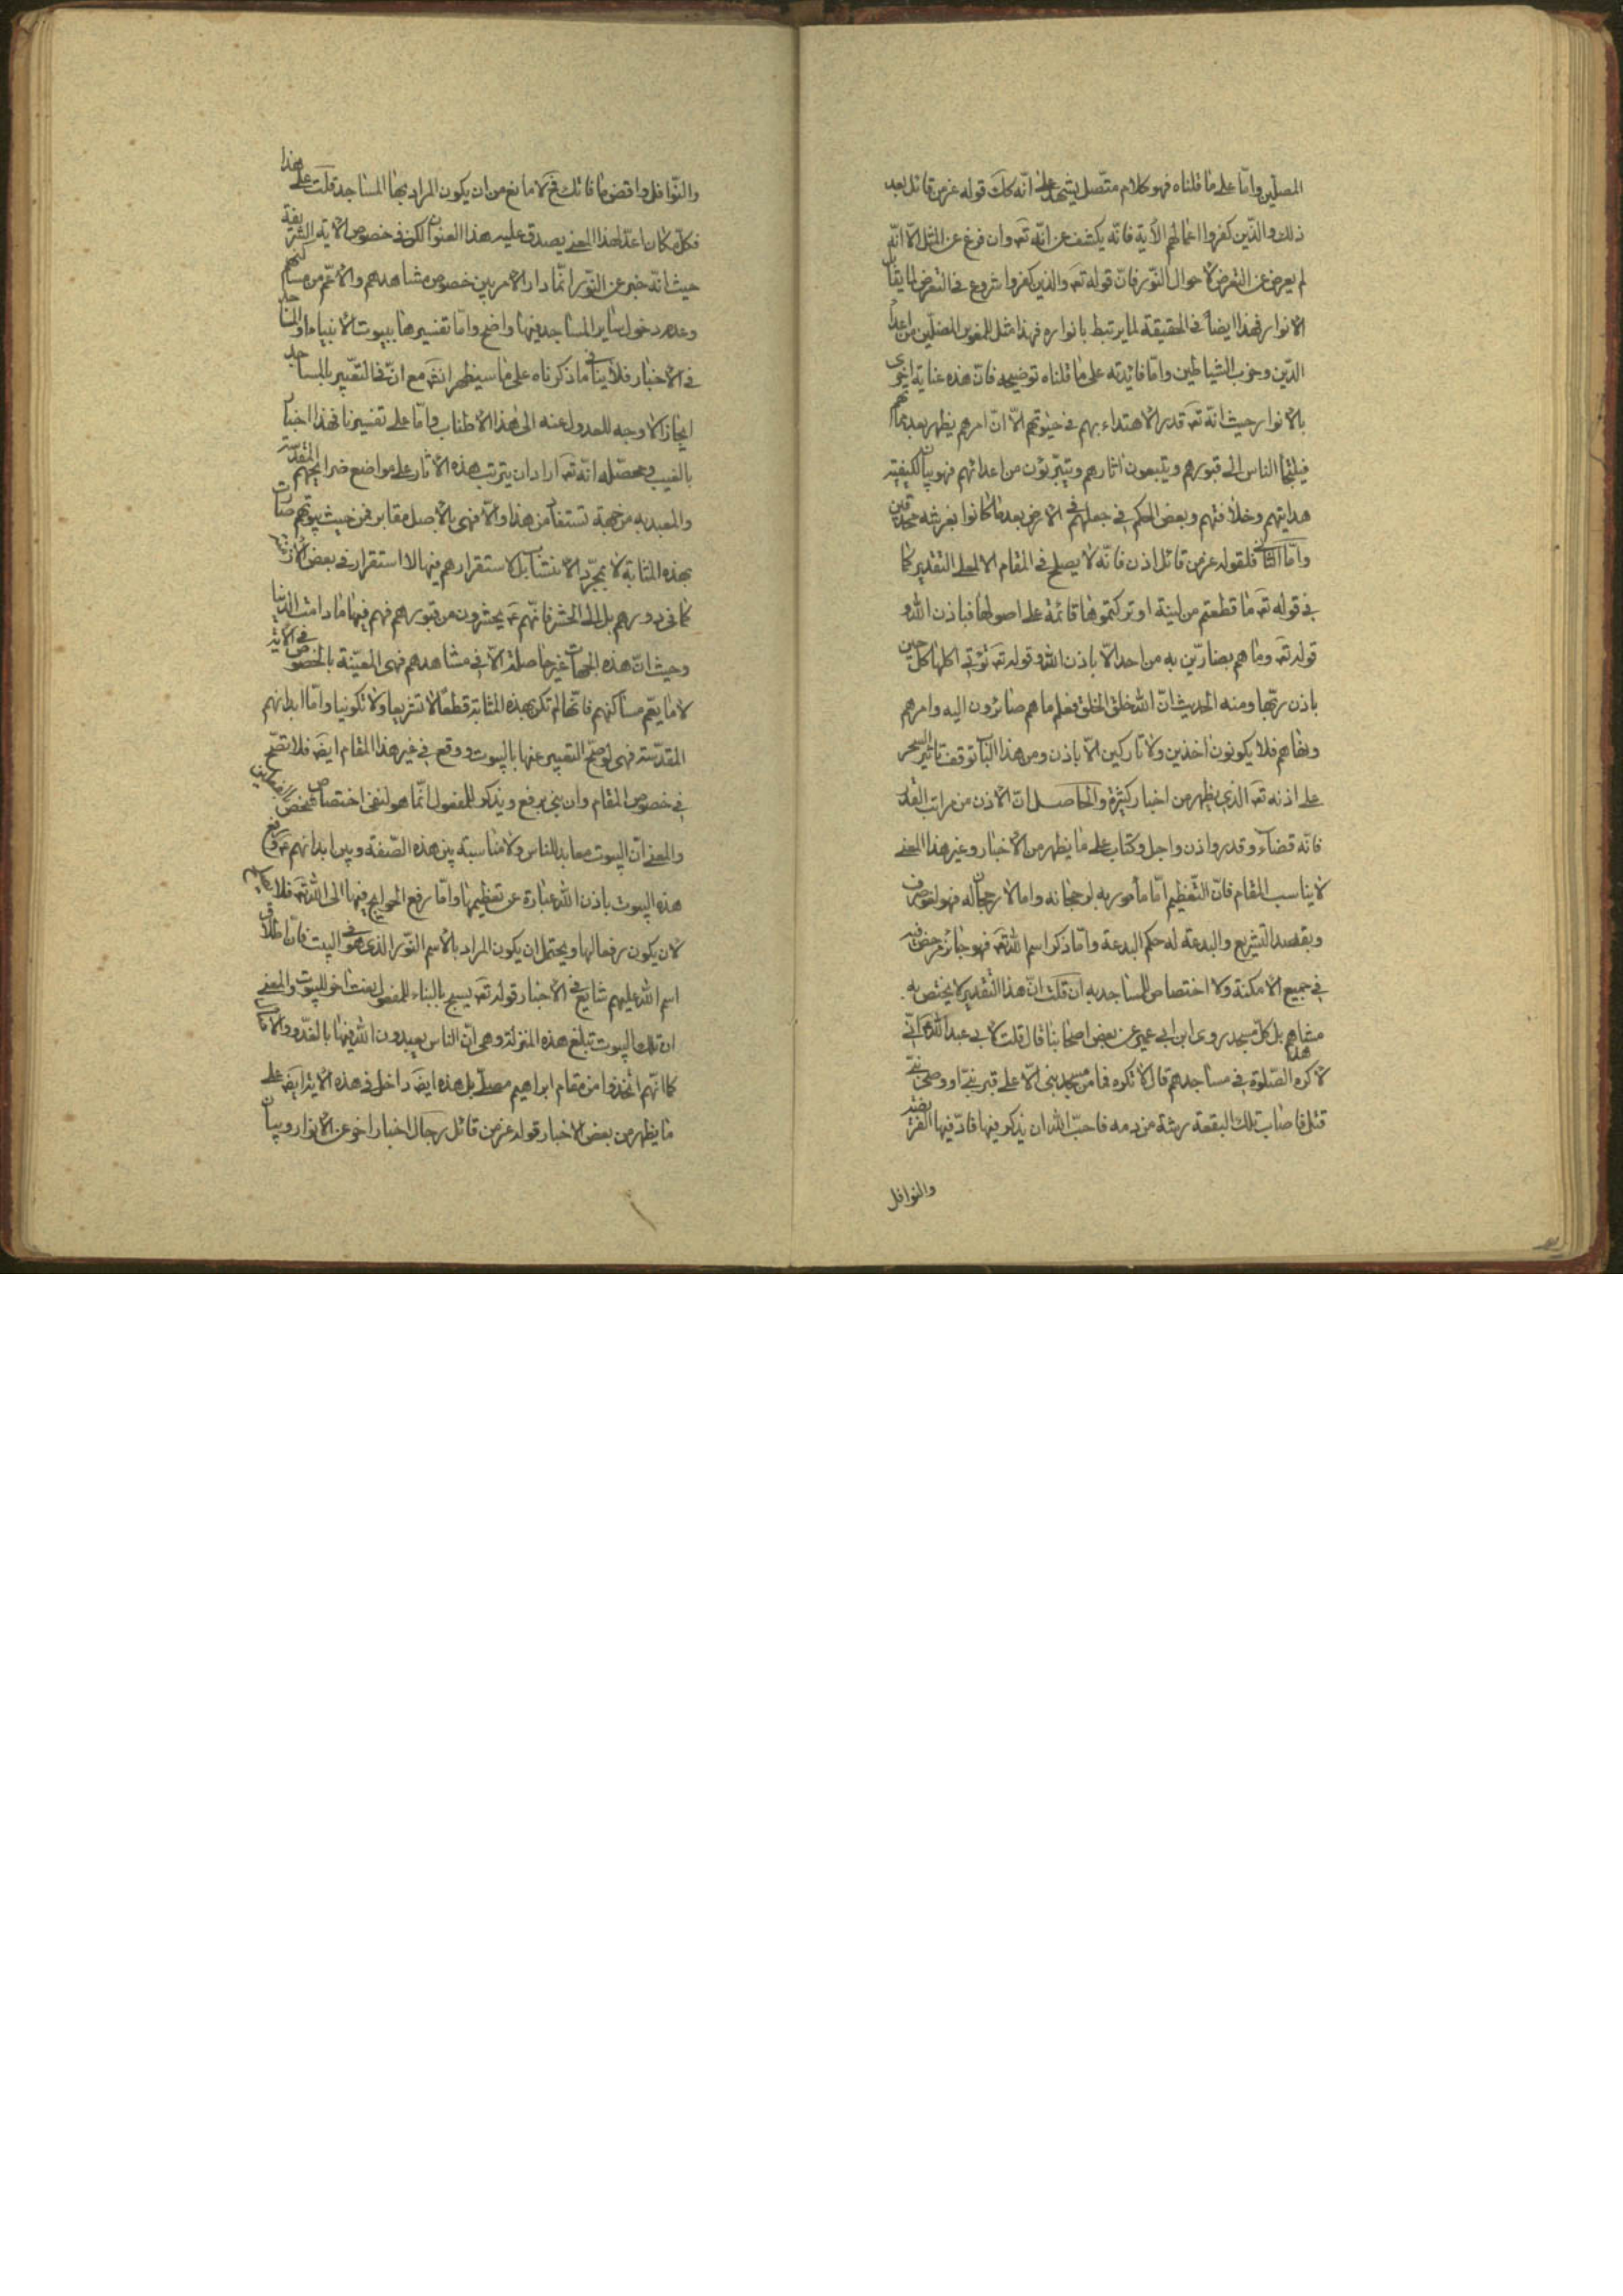 المصلّين وامّا على ما قلناه فهو كلام متّصل يشهد على انّه كك قوله عز من قائل بعد
ذلك والذين كفروا اعمالهم الآية فانّه يكشف عن انّه تعـ وان فرغ عن المثل الا انّه
لم يعرض عن التعرض لاحوال النّور فانّ قوله تعـ والذين كفروا شروع فى التعرض لما يقابل
الانوار فهذا ايضاً فى الحقيقة لما يرتبط بانواره فهذا مثل للمضلّين من اعداء
الدّين وحزب الشياطين وامّا فائدته على ما قلناه توضيحه فانّ هذه عناية اخرى
بالانوار حيث انّه تعـ قدر الاهتداء بهم فى حيوتهم الّا انّ امرهم يظهر بعد مماتهم
فيلتجأ الناس الى قبورهم ويتّبعون اثارهم ويتبرّؤن من اعدائهم فهو بيان لكيفيّة
هدايتهم وخلافتهم وبعض الحكم فى جعلهم فى الارض بعد ما كانوا بعرشه محدقين
وامّا الثانى فلقوله عز من قائل اذن فانّه لا يصلح فى المقام الا لمعنى التقدير كما
فى قوله تعـ ما قطعتم من لينة او تركتموها قائمة على اصولها فباذن الله و
قوله تعـ وما هم بضارّين به من احد الّا باذن الله وقوله تعـ تؤتى اكلها كلّ حين
باذن ربّها ومنه الحديث انّ الله خلق الخلق فعلم ما هم صائرون اليه وامرهم
ونهاهم فلا يكونون اخذين ولا تاركين الّا باذن ومن هذا الباب توقف تاثير السحر
على اذنه تعـ الذى يظهر من اخبار كثيرة والحاصـــل انّ الاذن من مراتب القدر
فانّه قضاء وقدر واذن واجل وكتاب على ما يظهر من الاخبار وغير هذا المعنى
لا يناسب المقام فانّ التّعظيم امّا مأمور به لرجحانه واما لا رجحان له فهو لغو صرف
وبقصد التشريع والبدعة له حكم البدعة وامّا ذكر اسم الله تعـ فهو جائز مرخص فيه
فى جميع الامكنة ولا اختصاص للمساجد به ان قلت انّ هذا التقدير لا يختص به
مشاهدهم بل كلّ مسجد روى ابن ابى عمير عن بعض اصحابنا قال قلت لابى عبد الله ع انّى
لاكره الصّلوة فى مساجدهم قال لا تكره فما من مسجد بنى الّا على قبر نبىّ او وصىّ نبىّ
قتل فاصاب تلك البقعة رشة من دمه فاحبّ الله ان يذكر فيها فادّ فيها الفريضة
والنوافل
والنّوافل واقض ما فاتك فح لا مانع من ان يكون المراد بها المساجد قلت على هذا
فكلّ مكان اعدّ لهذا المعنى يصدق عليه هذا العنوان لكن فى خصوص الاية الشريفة
حيث انّه خبر عن النّور انّما دار الامر بين خصوص مشاهدهم والاعّم من مساكنهم
وعدم دخول ساير المساجد فيها واضح وامّا تفسيرها ببيوت الانبياء او المساجد
فى الاخبار فلا ينافى ما ذكرناه على ما سيظهر انشـ مع انّ فى التعبير بالمساجد
ايجازا لا وجه للعدول عنه الى هذا الاطناب وامّا على تفسيرنا فهذا اخبار
بالغيب ومحصّله انّه تعـ اراد ان يترتب هذه الاثار على مواضع ضرايحهم المقدّسة
والمعبديه من جهة تستفاد من هذا والّا فهى بالاصل مقابر فمن حيث بيوتهم صارت
بهذه المثابة لا بمجرّد الانتساب بل لاستقرارهم فيها لا استقرار فى بعض الازمنة
كما فى دورهم بل الى الحشر فانّهم ع يحشرون من قبورهم فهم فيها ما دامت الدّنيا
وحيث انّ هذه الجهات غير حاصلة الّا فى مشاهدهم فهى المعيّنة بالخصوص فى الاية
لا ما يعّم مساكنهم فانّها لم تكن بهذه المثابة قطعًا لا تشريعا ولا تكوينا وامّا ابدانهم
المقدّسة فهى لو صحّ التعبير عنها بالبيوت ووقع فى غير هذا المقام ايضـ فلا تصّح
فى خصوص المقام وان بنى يرفع ويذكر للمفعول انّما هو لنفى اختصاص شخص بالفعلين
والمعنى انّ البيوت معابد للناس ولا مناسبة بين هذه الصّفة وبين ابدانهم ع ورفع
هذه البيوت باذن الله عبارة عن تعظيمها وامّا رفع الحوايج فيها الى الله تعـ فلا يلايم
لان يكون رفعا لها ويحتمل ان يكون المراد بالاسم النّور الذى هو فى البيت فانّ اطلاق
اسم الله عليهم شايع فى الاخبار قوله تعـ يسبح بالبناء للمفعول نعت اخر للبيوت والمعنى
ان تلك البيوت تبلغ هذه المنزلة وهى انّ الناس يعبدون الله فيها بالغدّو والاصال
كما انّهم اتخذوا من مقام ابراهيم مصلّى بل هذه ايضـ داخل فى هذه الاية ايضـ على
ما يظهر من بعض الاخبار قوله عز من قائل رجال اخبار اخر عن الانوار وبيان